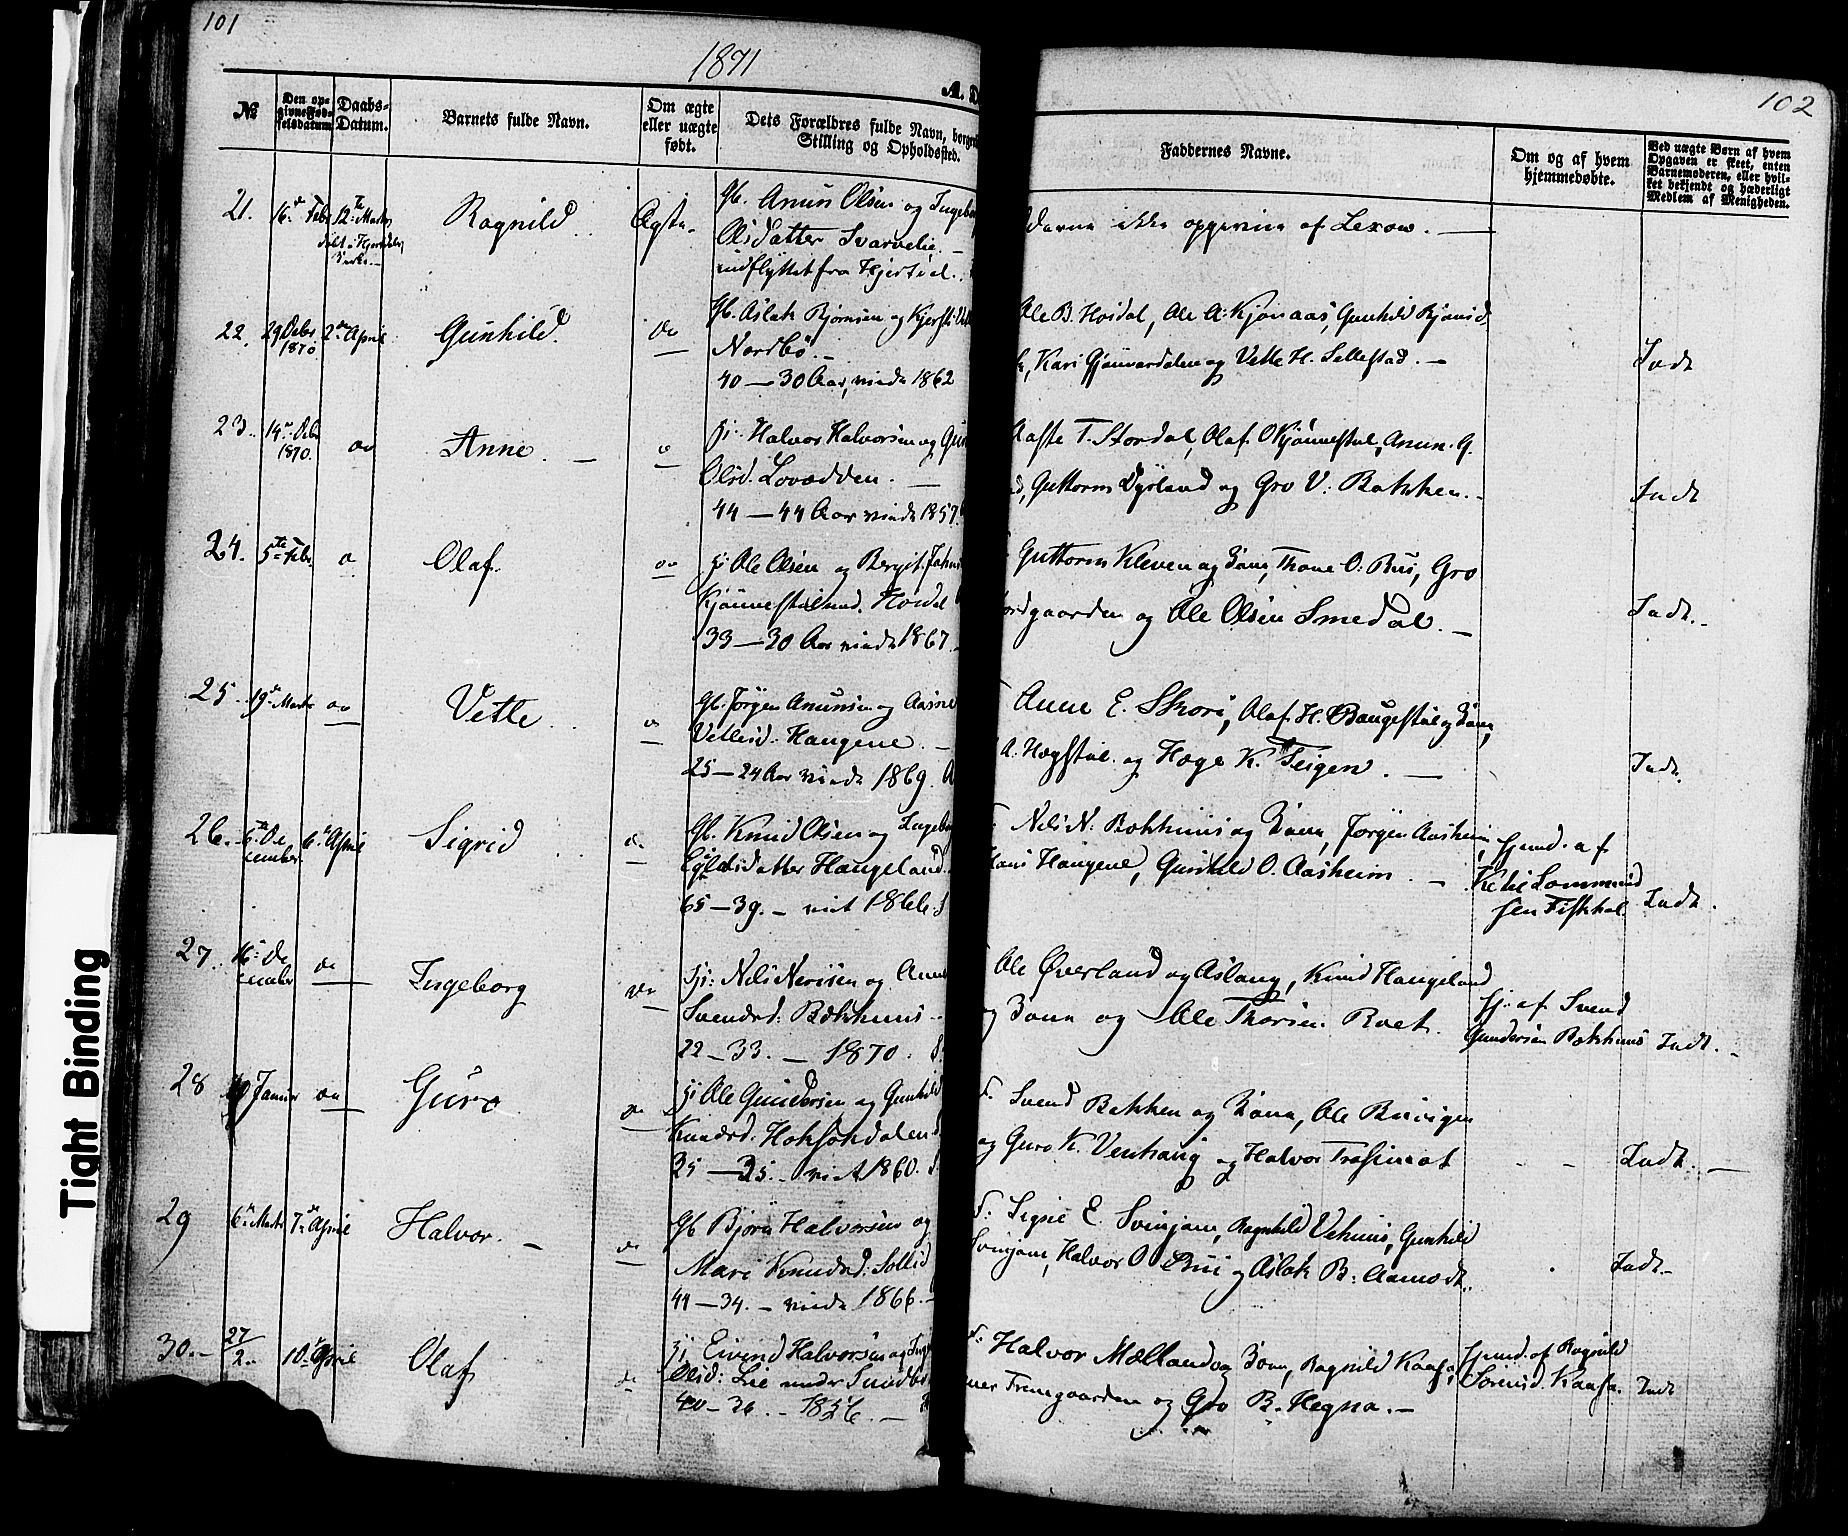 101
1871
102
№
Den op-
givne Fød-
selsdatum
Daabs-
Datum.
Barnets fulde Navn.
Om ægte
eller uægte
født.
Dets Forældres fulde Navn, borger
Stilling og Opholdssted.
Faddernes Navne.
Om og af hvem
hjemmedøbte.
Ved uægte Børn af hvem
Opgaven er skeet, enten
Barnemoderen, eller hvil-
ket bekjendt og hæderligt
Medlem af Menigheden.
21. 16. Febr 12te Marts Ragnild Ægte Gb. Anun Olsen og Ingebo
Olsdatter Svarvelie
indflyttet fra Hjertdal.
ikke opgivne af Lexow.
22. 29 Decbr 1870 2den April Gunhild. do Gb. Aslak Bjørnsen og Kjersti
Nordbø.
40 — 30 Aar, viede 1862
Ole B. Hoidal, Ole A. Kjønaas, Gunhild Bjørnsd
Kari Gjønvardalen og Vetle H. Sellestad.
Indt
23. 14 Decbr 1870. do Anne do Gj. Halvor Halvorsen og Gun
Olsd. Lovodden.
44 — 44 Aar viede 1857.
Aaste T. Stordal, Olaf O Kjønnestul, Anun. G.
Guttorm Dyrland og Gro V. Bakken.
Indt
24. 5te Febr do Olaf. do Gj. Ole Olsen og Bergit Johns
Kjønnestulund. Hordal
33 — 30 Aar viede 1867.
Guttorm Kleven og Kone, Thone O. Bus, Gro
ordgaarden og Ole Olsen Smedal.
Indt.
25. 19de Marts do Vetle do Gb. Jørgen Anunsen og Aasne
Vetlesd. Haugene.
25 — 24 Aar viede 1869.
Anne E. Skori, Olaf H. Baugestul og Kone,
A. Hægstul. og Hæge K. Teigen.
Indt.
26. 6te December 6te April Sigrid do Gb. Knud Olsen og Ingebo
datter Haugeland.
65 — 39. — viet 1866.
Nils N. Bækhuus og Kone, Jørgen Aasheim,
Hans Haugene, Gunhild O. Aasheim.
Hjemd. af
Ketil Sammund
sen Fiskkal
Indt.
27. 16. December do Ingeborg do Gj. Nils Nerisen og Anne
Svendsd: Bækhuus
22 — 33. — 1870.
Ole Øverland og Aslaug, Knud Haugeland
og Kone og Ole Thorsen Roet.
Hj. af Svend
Gundersen Bækhuus
Indt.
28 10 Januar do Guro do Gj Ole Gundersen og Gunhild
Knudsd. Hoksokdalen
25 — 35. — viet 1860.
Svend Bakken og Kone, Ole
og Guro K. Venhaug og Halvor
Indt.
29 6te Marts 7de April Halvor. do Gb Bjørn Halvorsen og
Mari Knudsd. Sollid
41 — 34. — viede 1866.
F. Signe E. Svinjom, Ragnhild Vehuus, Gunhild
Svinjom, Halvor O Bui og Aslak B. Aamodt.
Indt.
30. 27/2. 10de April Olaf do Gj Eivind Halvorsen og Ing
Olsd: Lie under Sundbø
40 — 36. — 1856.
F. Halvor Mælland og Kone, Ragnild Kaasa,
Fremgaarden og Gro B. Hegna.
Hjemd. af Ragnild
Sørensd. Kaasa.
Indt
Tight Binding